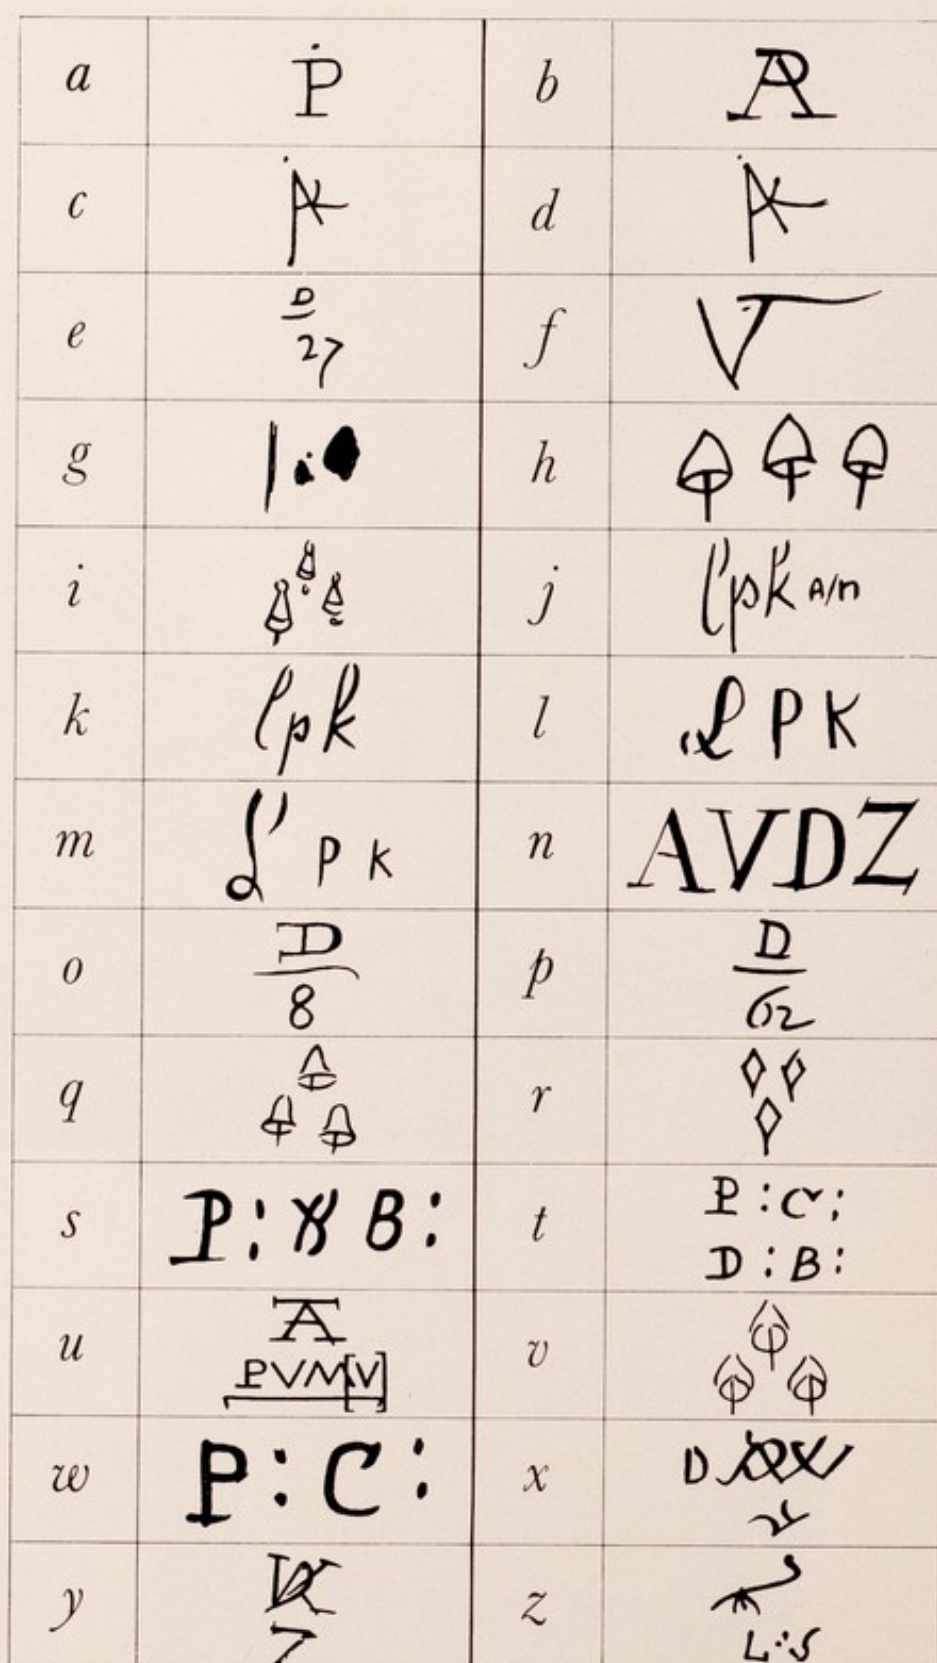 a P b AR
c d
e D 27 f
g h
i j l'pk A/n
k lpk l L P K
m L' P K n AVDZ
o D 8 p D 62
q r
s P: B: t P:C: D:B:
u A PVM[V] v
w P:C: x D
y z L:S